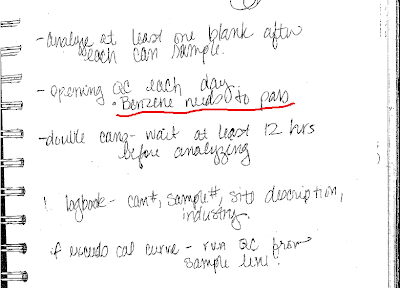 -analyze at least one blank after
each can sample.
-opening QC each day
• Benzene needs to pass
-double cans- wait at least 12 hrs
before analyzing
! logbook- can#, sample#, site description,
industry.
if exceeds cal curve - run QC from
sample line!